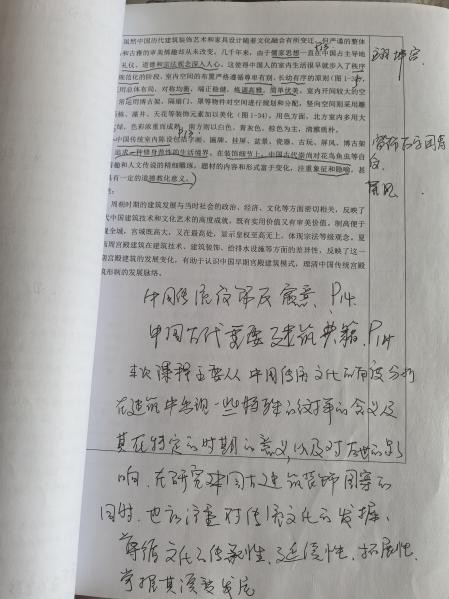 虽然中国历代建筑装饰艺术和家具设计随着文化融合有所变迁，但严谨的整体
和古雅的审美情趣却从未改变。几千年来，由于儒家思想一直在中国占主导地
礼仪、道德和宗法观念深入人心，这使得中国人的室内生活很早就步入了秩序
规范化的阶段，室内空间的布置严格遵循尊卑有别、长幼有序的原则（图1-3
用总体布局，对称均衡，端正稳健，格调高雅，简单优美，室内开间较大的空
常运用博古架、隔扇门、罩等物件对空间进行规划和分配，竖向空间则采用雕
栋、藻井、天花等装饰元素加以美化（图1-34），用色方面，北方室内多用大
绿，色彩浓重而成熟，南方则以白色，青灰色，棕色为主，清雅质朴。
中国传统室内陈设包括字画、匾牌、挂屏、盆景、瓷器、古玩、屏风、博古架
追求一种修身养性的生活境界。在装饰细节上，中国古代崇尚对花鸟鱼虫等自
情趣和人文传说的精细雕琢，题材的内容和形式富于变化，注重象征和隐喻，甚
具有一定的道德教化意义。
：
周朝时期的建筑发展与当时社会的政治、经济、文化等方面密切相关，反映了
代中国建筑技术和文化艺术的高度成就，既有实用价值又有审美价值。制高便于
瞰全城，宫城既高大，又在最高处，显示皇权至高无上，体现宗法等级观念。夏
西周宫殿建筑在建筑技术、建筑装饰、给排水设施等方面的差异性，反映了这一
期宫殿建筑的发展变化，有助于认识中国早期宫殿建筑模式，理清中国传统宫殿
筑形制的发展脉络。
中国传统纹饰及寓意. P14
中国古代重要建筑典籍. P14
本次课程主要从中国传统文化的角度分析
在建筑中出现一些特殊的纹样的含义及
其在特定的时期的意义，以及对后世的影
响. 在研究中国古建筑装饰图案的
同时. 也应注重对传统文化的发掘.
尊循文化的传承性、延续性、拓展性.
掌握其演变发展